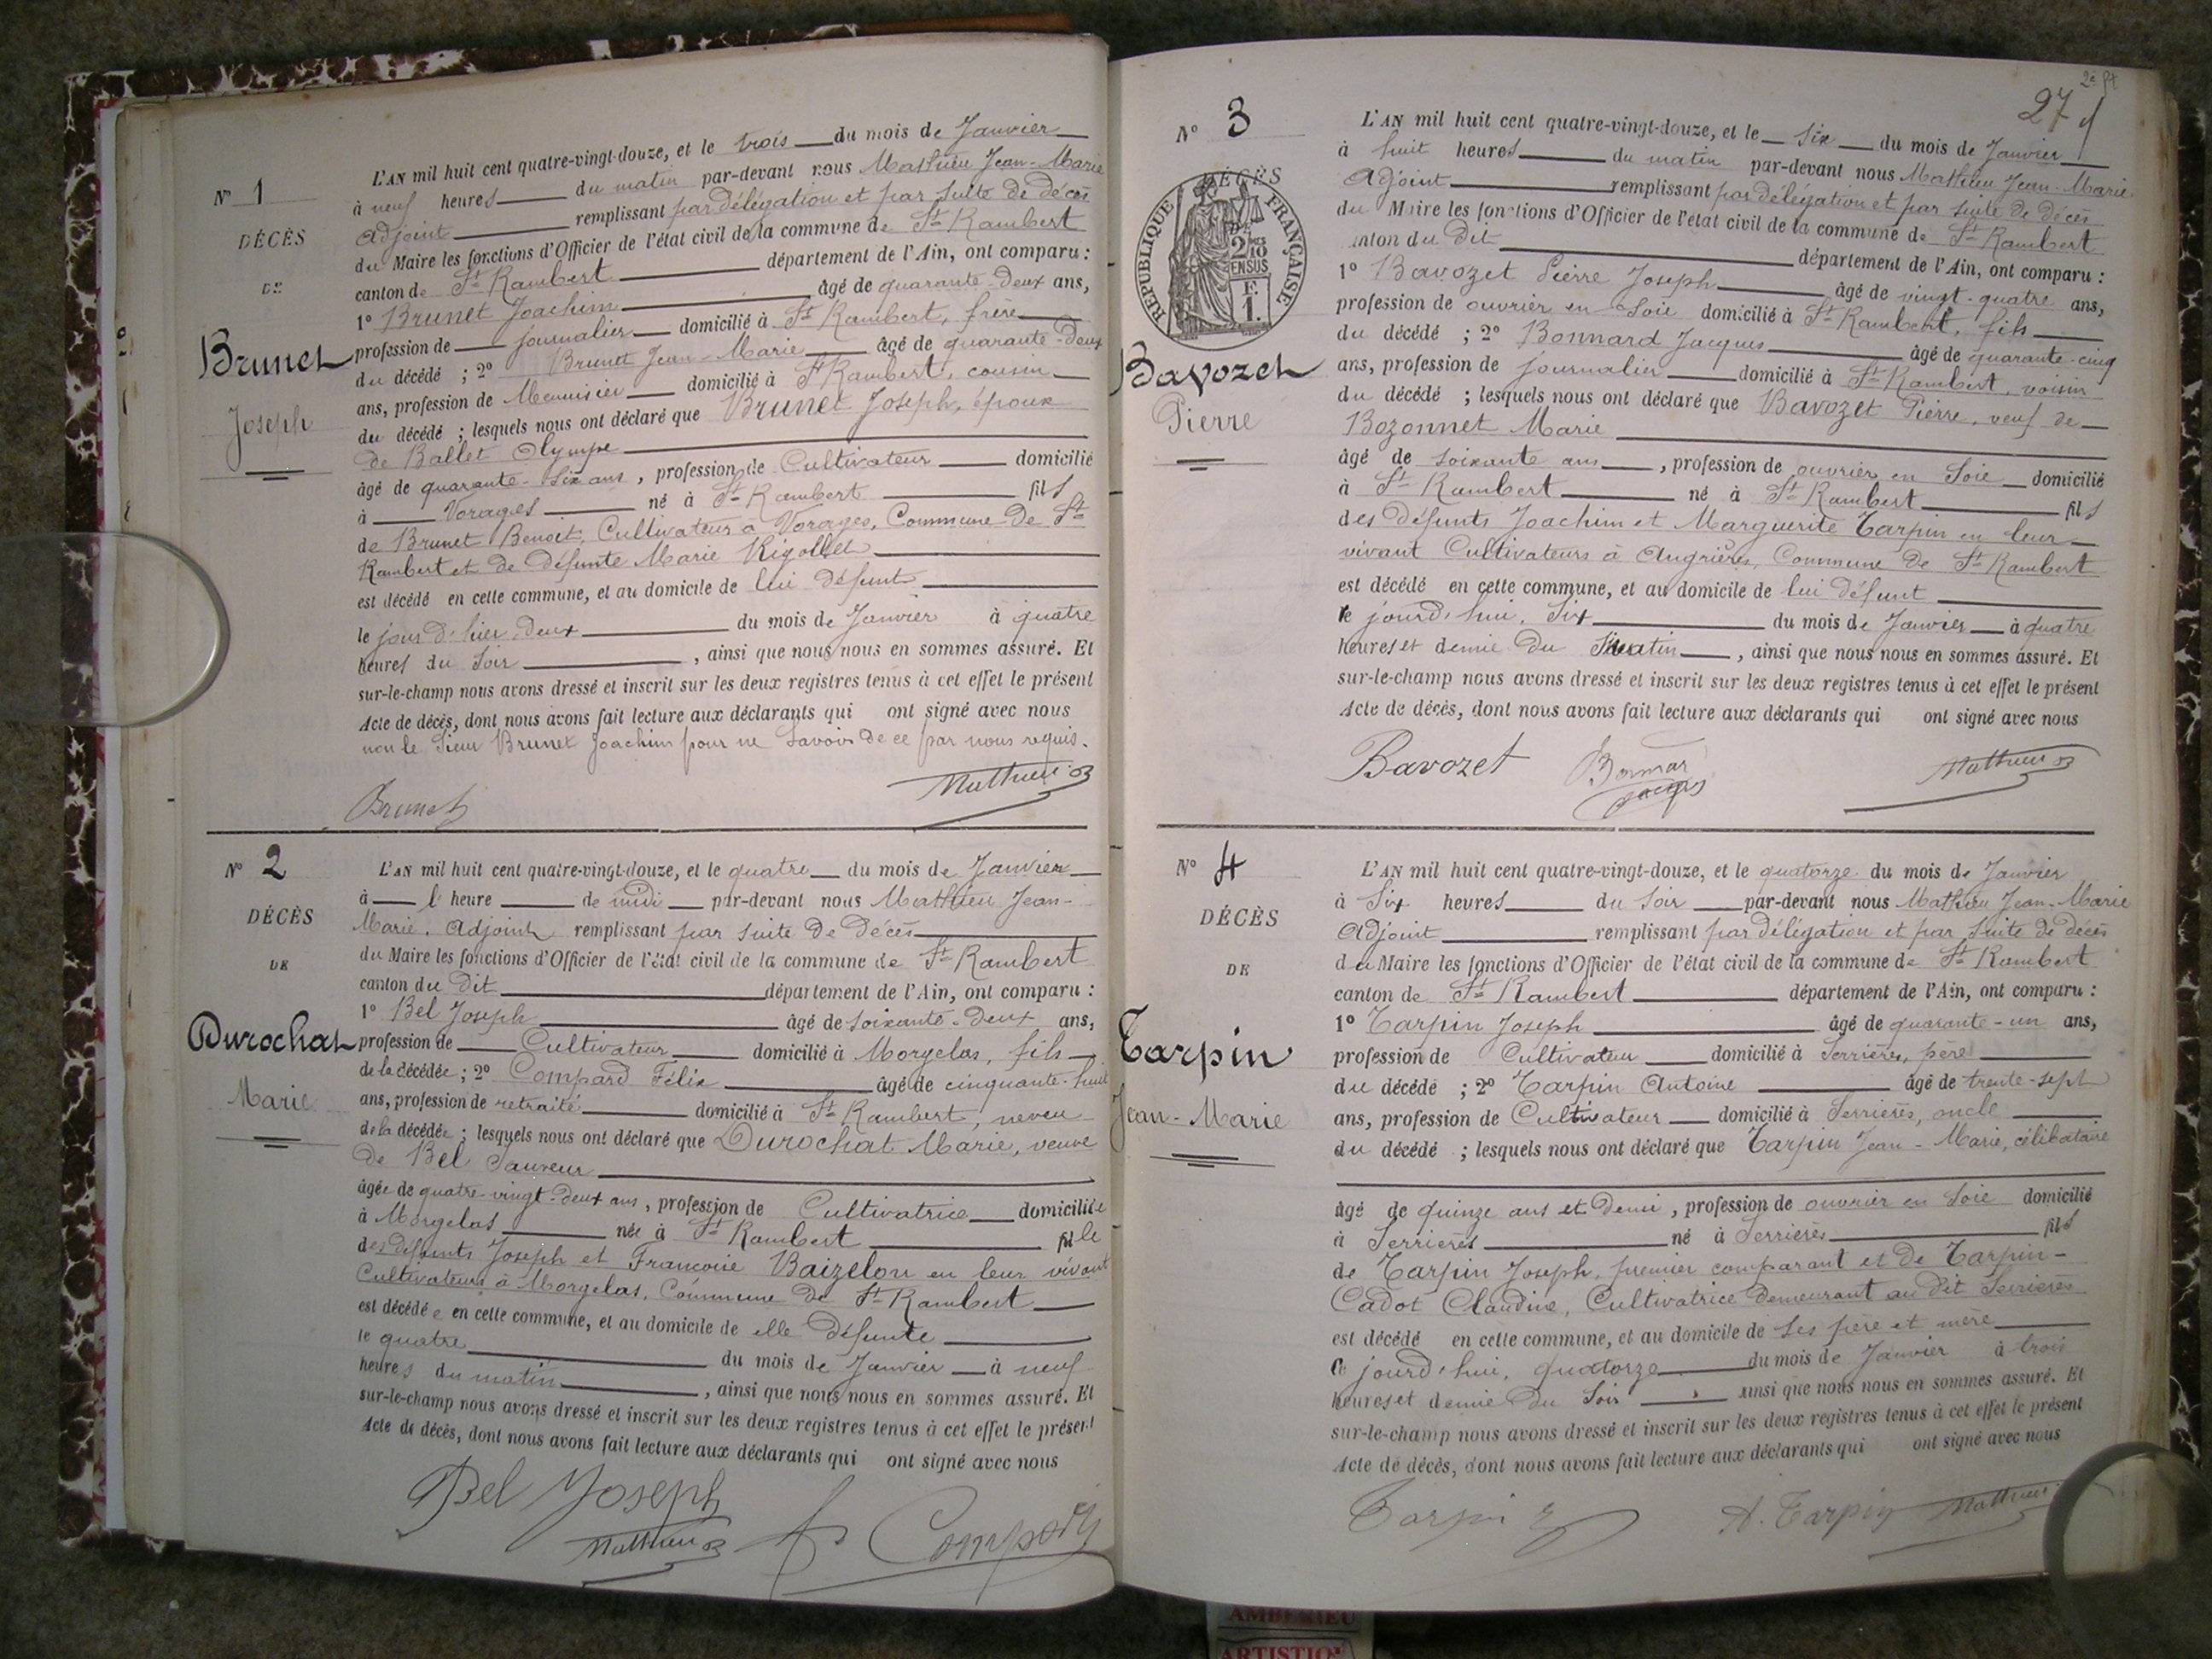 N° 1
DÉCÈS
DE
Brunet
Joseph
L'AN mil huit cent quatre-vingt-douze, et le trois du mois de Janvier
à neuf heures du matin par-devant nous Mathieu Jean-Marie
adjoint remplissant par délégation et par suite de décès
du Maire les fonctions d'Officier de l'état civil de la commune de St Rambert
canton de St Rambert département de l'Ain, ont comparu :
1° Brunet Joachim âgé de quarante-deux ans,
profession de journalier domicilié à St Rambert, frère
du décédé ; 2° Brunet Jean-Marie âgé de quarante-deux
ans, profession de Menuisier domicilié à St Rambert, cousin
du décédé ; lesquels nous ont déclaré que Brunet Joseph, époux
de Ballet Olympe
âgé de quarante-six ans, profession de Cultivateur domicilié
à Vorages né à St Rambert fils
de Brunet Benoit, Cultivateur à Vorages, Commune de St
Rambert et de défunte Marie Rigollet
est décédé en cette commune, et au domicile de lui défunt
le jour d'hier, deux du mois de Janvier à quatre
heures du soir, ainsi que nous nous en sommes assuré. Et
sur-le-champ nous avons dressé et inscrit sur les deux registres tenus à cet effet le présent
Acte de décès, dont nous avons fait lecture aux déclarants qui ont signé avec nous
non le sieur Brunet Joachim pour ne savoir de ce par nous requis.
Brunet Mathieu
N° 2
DÉCÈS
DE
Durochat
Marie
L'AN mil huit cent quatre-vingt-douze, et le quatre du mois de Janvier
à l'heure de midi par-devant nous Mathieu Jean-
Marie, adjoint remplissant par suite de décès
du Maire les fonctions d'Officier de l'état civil de la commune de St Rambert
canton du dit département de l'Ain, ont comparu :
1° Bel Joseph âgé de soixante-deux ans,
profession de Cultivateur domicilié à Morgelas, fils
de la décédée ; 2° Compard Félix âgé de cinquante-huit
ans, profession de retraité domicilié à St Rambert, neveu
de la décédée ; lesquels nous ont déclaré que Durochat Marie, veuve
de Bel Sauveur
âgée de quatre-vingt-deux ans, profession de Cultivatrice domiciliée
à Morgelas née à St Rambert fille
des défunts Joseph et Françoise Baizelon en leur vivant
Cultivateurs à Morgelas, Commune de St Rambert
est décédée en cette commune, et au domicile de elle défunte
le quatre du mois de Janvier à neuf
heures du matin, ainsi que nous nous en sommes assuré. Et
sur-le-champ nous avons dressé et inscrit sur les deux registres tenus à cet effet le présent
Acte de décès, dont nous avons fait lecture aux déclarants qui ont signé avec nous
Bel Joseph
Mathieu
27
N° 3
DÉCÈS
RÉPUBLIQUE FRANÇAISE
2/10
EN SUS
F.
1.
Bavozet
Pierre
L'AN mil huit cent quatre-vingt-douze, et le six du mois de Janvier
à huit heures du matin par-devant nous Mathieu Jean-Marie
adjoint remplissant par délégation et par suite de décès
du Maire les fonctions d'Officier de l'état civil de la commune de St Rambert
canton du dit département de l'Ain, ont comparu :
1° Bavozet Pierre Joseph âgé de vingt-quatre ans,
profession de ouvrier en soie domicilié à St Rambert, fils
du décédé ; 2° Bonnard Jacques âgé de quarante-cinq
ans, profession de journalier domicilié à St Rambert, voisin
du décédé ; lesquels nous ont déclaré que Bavozet Pierre, veuf de
Bozonnet Marie
âgé de soixante ans, profession de ouvrier en soie domicilié
à St Rambert né à St Rambert fils
des défunts Joachim et Marguerite Tarpin en leur
vivant Cultivateurs à Angrières, Commune de St Rambert
est décédé en cette commune, et au domicile de lui défunt
ce jourd'hui, six du mois de Janvier à quatre
heures et demie du matin, ainsi que nous nous en sommes assuré. Et
sur-le-champ nous avons dressé et inscrit sur les deux registres tenus à cet effet le présent
Acte de décès, dont nous avons fait lecture aux déclarants qui ont signé avec nous
Bavozet Mathieu
N° 4
DÉCÈS
DE
Tarpin
Jean-Marie
L'AN mil huit cent quatre-vingt-douze, et le quatorze du mois de Janvier
à six heures du soir par-devant nous Mathieu Jean-Marie
adjoint remplissant par délégation et par suite de décès
du Maire les fonctions d'Officier de l'état civil de la commune de St Rambert
canton de St Rambert département de l'Ain, ont comparu :
1° Tarpin Joseph âgé de quarante-un ans,
profession de Cultivateur domicilié à Serrières, père
du décédé ; 2° Tarpin Antoine âgé de trente-sept
ans, profession de Cultivateur domicilié à Serrières, oncle
du décédé ; lesquels nous ont déclaré que Tarpin Jean-Marie, célibataire
âgé de quinze ans et demi, profession de ouvrier en soie domicilié
à Serrières né à Serrières fils
de Tarpin Joseph, premier comparant et de Tarpin-
Cadot Claudine, Cultivatrice demeurant au dit Serrières
est décédé en cette commune, et au domicile de ses père et mère
ce jourd'hui, quatorze du mois de Janvier à trois
heures et demie du soir ainsi que nous nous en sommes assuré. Et
sur-le-champ nous avons dressé et inscrit sur les deux registres tenus à cet effet le présent
Acte de décès, dont nous avons fait lecture aux déclarants qui ont signé avec nous
Tarpin A. Tarpin Mathieu
AMBERIEU